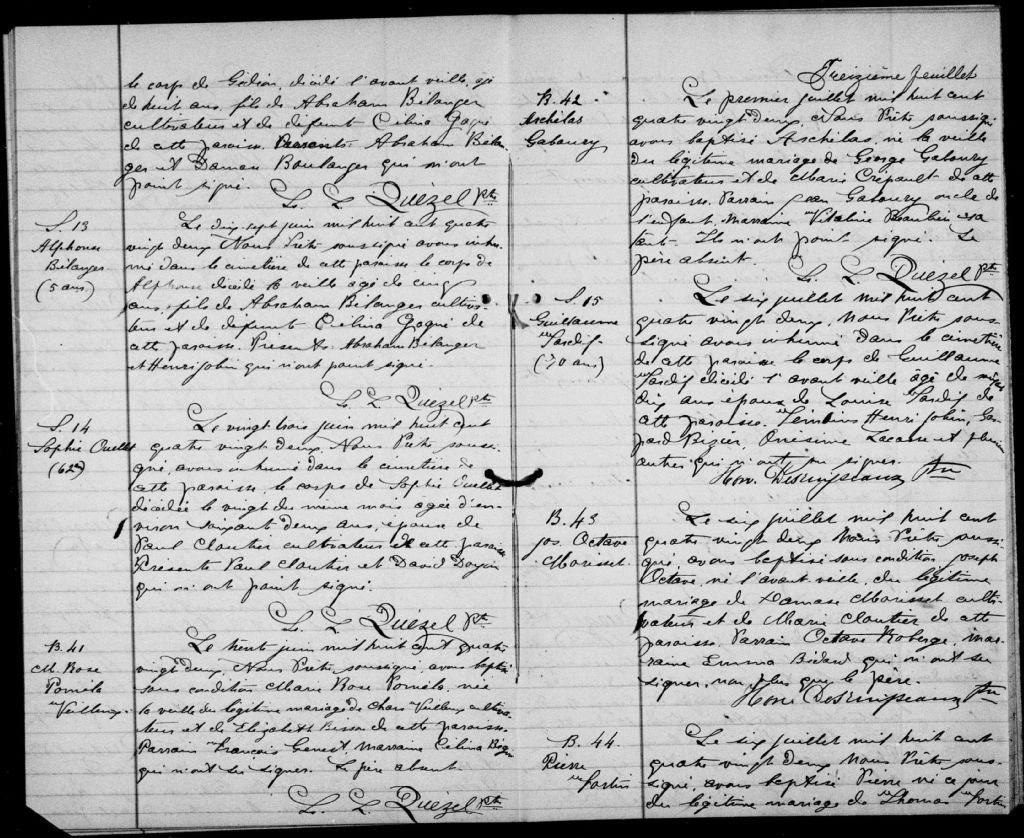 le corps de Gédéon, décédé l'avant veille, âgé
de huit ans, fils de Abraham Bélanger
cultivateur et de défunte Célina Gagné
de cette paroisse. Présents Abraham Bélan-
ger et Damase Boulanger qui n'ont
point signé.
L. L. Quézel Ptre
S. 13
Alphonse
Bélanger
(5 ans)
Le dix sept juin mil huit cent quatre
vingt deux Nous Prêtre soussigné avons inhu-
mé dans le cimetière de cette paroisse le corps de
Alphonse décédé la veille âgé de cinq
ans, fils de Abraham Bélanger cultiva-
teur et de défunte Célina Gagné de
cette paroisse. Présents Abraham Bélanger
et Henri Jobin qui n'ont point signé.
L. L. Quézel ptre
S. 14
Sophie Ouellet
(62)
Le vingt trois juin mil huit cent
quatre vingt deux. Nous Prêtre sous-
gné, avons inhumé dans le cimetière de
cette paroisse, le corps de Sophie Ouellet
décédée le vingt du même mois agée d'en-
viron soixante deux ans, épouse de
Paul Cloutier cultivateur de cette paroisse
Présents Paul Cloutier et David Doyon
qui n'ont point signé.
L. L. Quézel Ptr
B. 41
M. Rose
Poméla
Veilleux
Le trente juin mil huit cent quatre
vingt deux, Nous Prêtre, soussigné, avons baptisé
sous condition Marie Rose Poméla, née
la veille du légitime mariage de Chars Veilleux cultiva-
teur et de Elizabeth Bisson de cette paroisse.
Parrain François Genest, Marraine Célina
qui n'ont su signer. Le père absent.
L. L. Quézel Ptr
Treizième feuillet
B. 42
Aschilas
Gaboury
Le premier juillet mil huit cent
quatre vingt deux Nous Prêtre soussigné
avons baptisé Aschilas, né la veille
du légitime mariage de George Gaboury
cultivateur et de Marie Crépault de cette
paroisse. Parrain Jean Gaboury oncle de
l'enfant, Marraine Vitaline Beaulieu sa
tante. Ils n'ont point signé. Le
père absent.
L. L. Quézel Ptr
S. 15
Guillaume
Tardif
(70 ans)
Le six juillet mil huit cent
quatre vingt deux, Nous Prêtre sous-
signé avons inhumé dans le cimetière
de cette paroisse le corps de Guillaume
Tardif décédé l'avant veille âgé de
dix ans époux de Louise Tardif de
cette paroisse. Témoins Henri Jobin, Gas-
pard Onésime Lacasse et plusieurs
autres qui n'ont su signer.
Hon. Desruisseaux Ptre
B. 43
Jos. Octave
Morisset
Le six juillet mil huit cent
quatre vingt deux Nous Prêtre soussi-
gné, avons baptisé sous condition Joseph
Octave, né l'avant veille, du légitime
mariage de Damase Morisset culti-
vateur et de Marie Cloutier de cette
paroisse Parrain Octave Roberge, mar-
raine Emma Bédard qui n'ont su
signer, non plus que le père.
Hon. Desruisseaux Ptre
B. 44.
Pierre
Fortin
Le six juillet mil huit cent
quatre vingt deux Nous Prêtre sous-
signé, avons baptisé Pierre né ce jour
du légitime mariage de Thomas Fortin